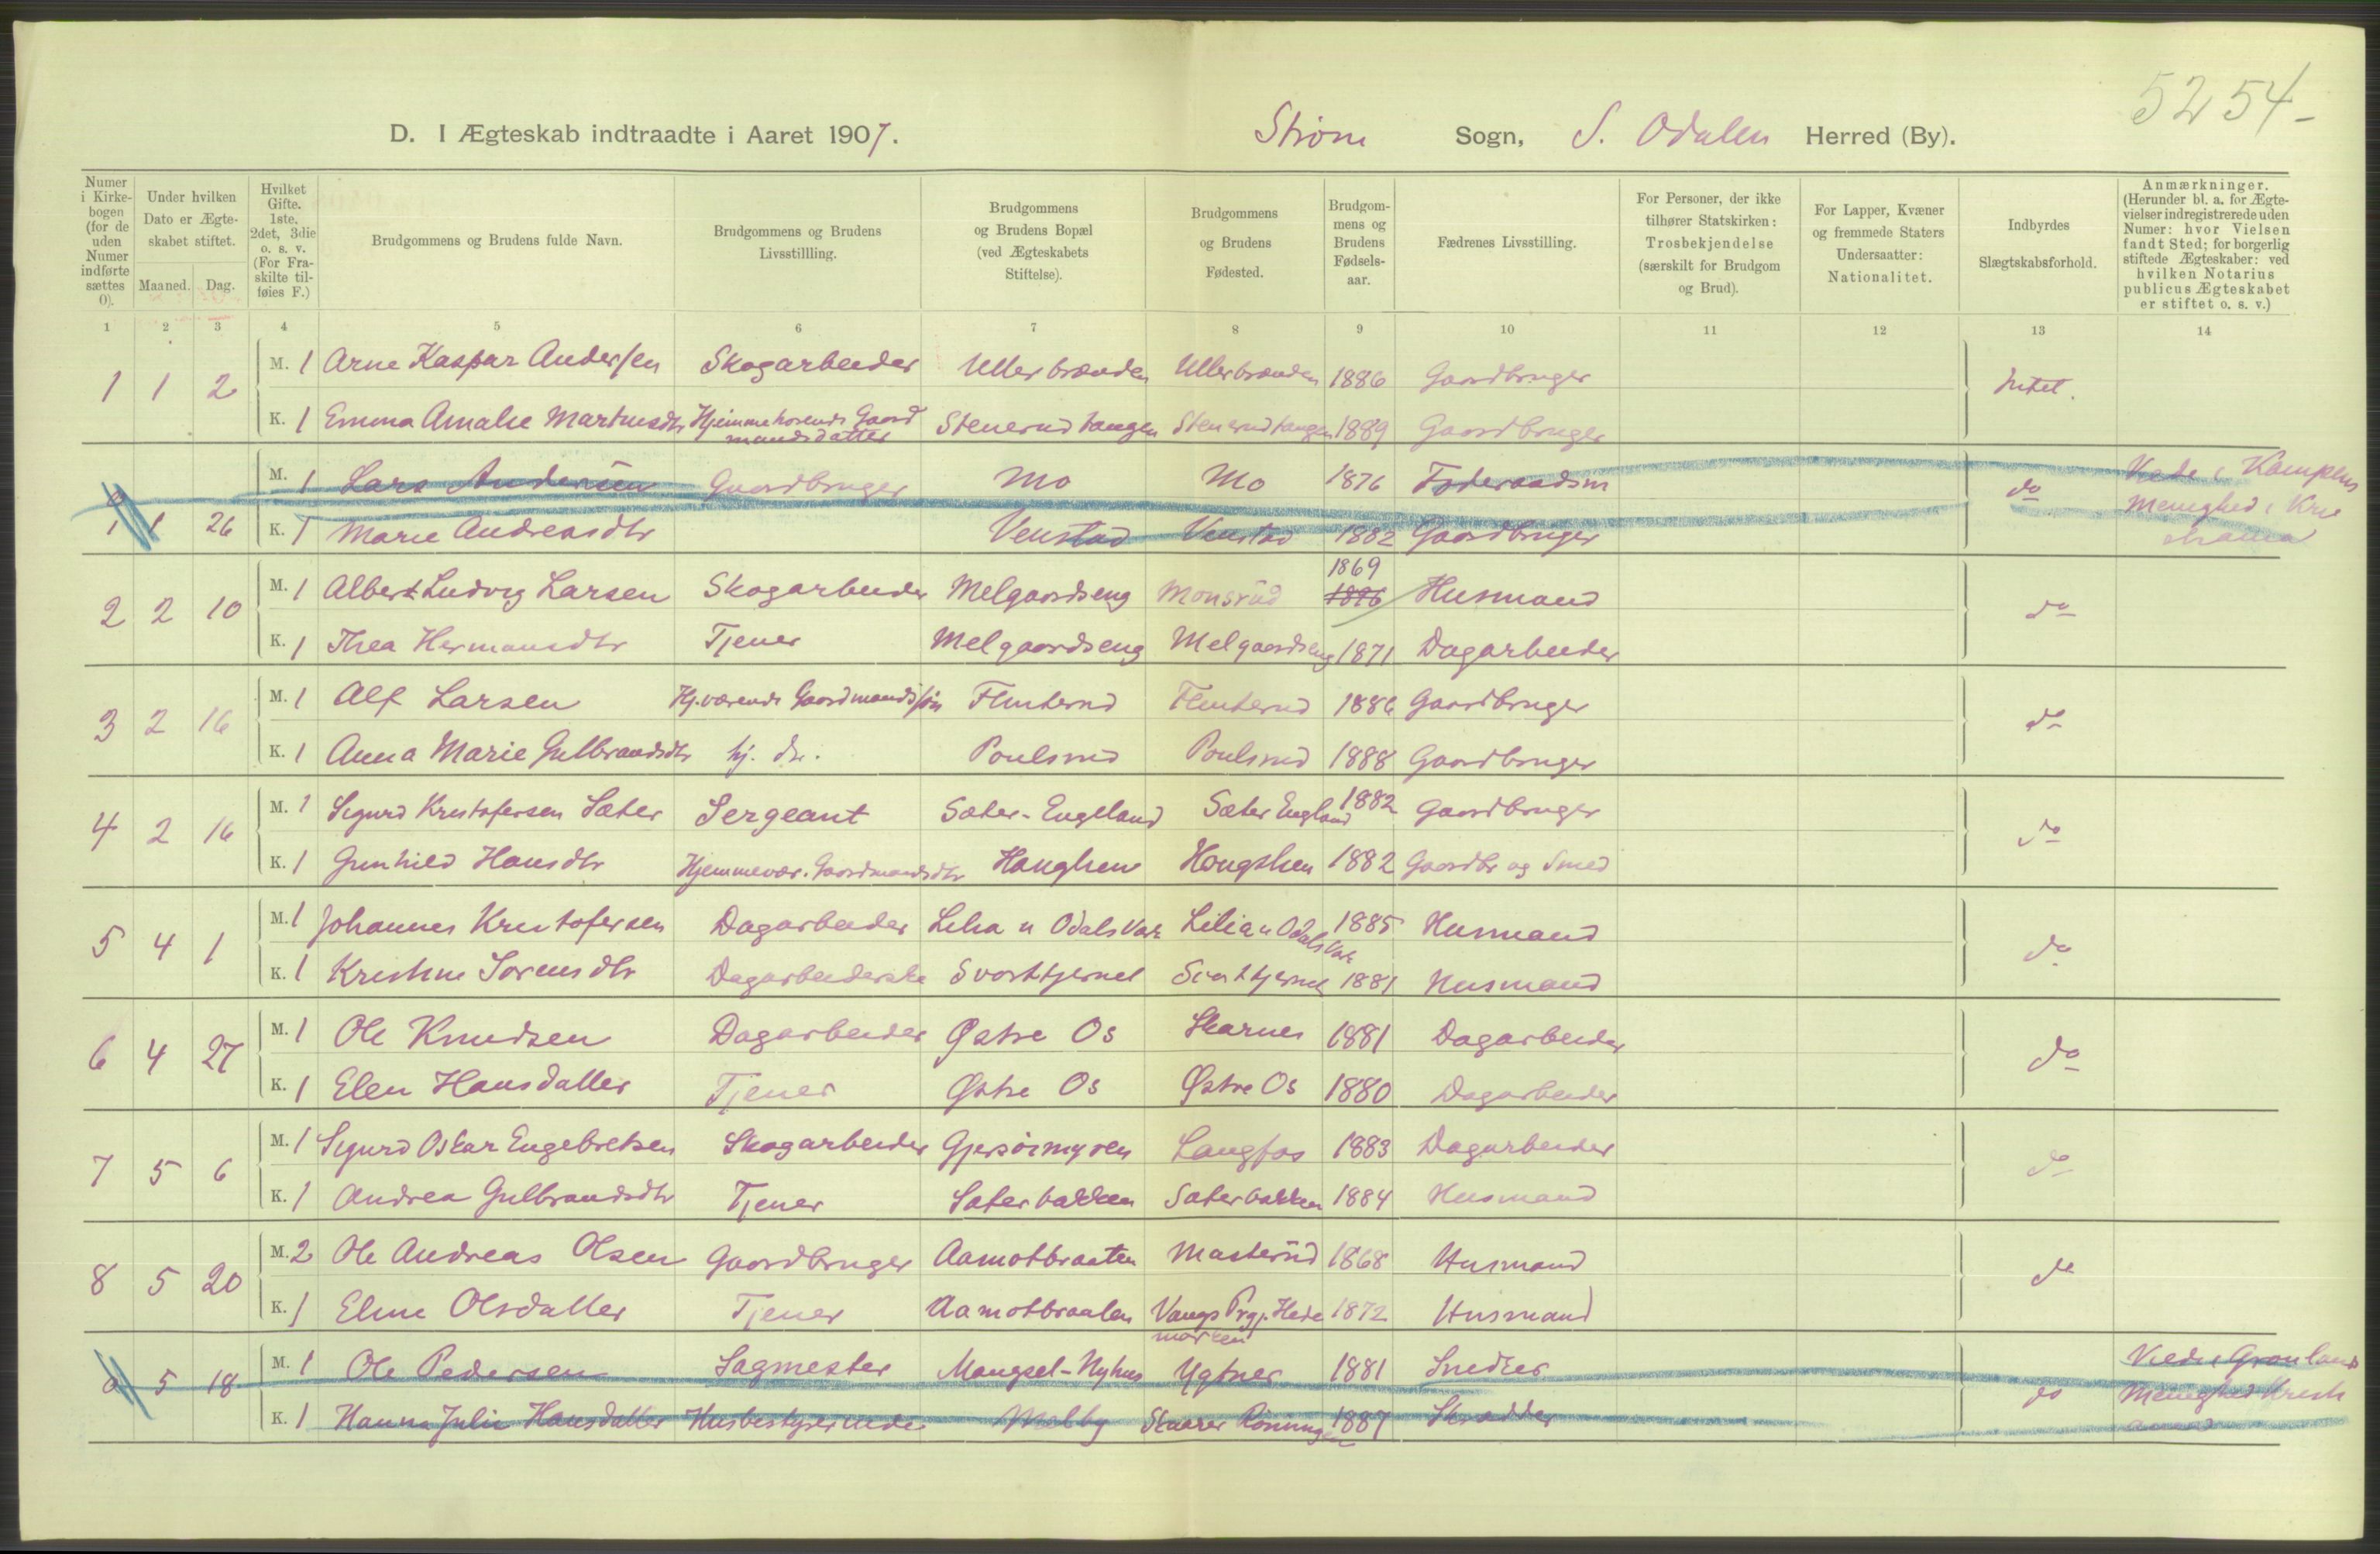 5254-
D. I Ægteskab indtraadte i Aaret 1907. Strøm Sogn, S. Odalen Herred (By).
Numer i Kirke-bogen (for de uden Numer indførte sættes 0).
Under hvilken Dato er Ægte-skabet stiftet.
Maaned. Dag.
Hvilket Gifte. 1ste. 2det, 3die o. s. v. (For Fra-skilte til-føies F.)
Brudgommens og Brudens fulde Navn.
Brudgommens og Brudens Livsstillling.
Brudgommens og Brudens Bopæl (ved Ægteskabets Stiftelse).
Brudgommens og Brudens Fødested.
Brudgom-mens og Brudens Fødsels-aar.
Fædrenes Livsstilling.
For Personer, der ikke tilhører Statskirken: Trosbekjendelse (særskilt for Brudgom og Brud).
For Lapper, Kvæner og fremmede Staters Undersaatter: Nationalitet.
Indbyrdes Slægtskabsforhold.
Anmærkninger. (Herunder bl. a. for Ægte-vielser indregistrerede uden Numer: hvor Vielsen fandt Sted; for borgerlig stiftede Ægteskaber: ved hvilken Notarius publicus Ægteskabet er stiftet o. s. v.)
1 2 3 4 5 6 7 8 9 10 11 12 13 14
M. 1 Arne Kaspar Andersen Skogarbeider Ullerbrænden Ullerbrænden 1886 Gaardbruger
1 1 2 Intet.
K. 1 Emma Amalie Martinsdtr Hjemmehørende Gaard Stenerudtangen Stenerudtangen 1889 Gaardbruger
mandsdatter
M. 1 Lars Andersen Gaardbruger Mo Mo 1876 Føderaadsm do Viede i Kampens
1 26 K. 1 Marie Andreasdtr Venstad Venstad 1882 Gaardbruger Menighed i Kri
stiania
1869
M. 1 Albert Ludvig Larsen Skogarbeider Melgaardseng Monsrud 1896 Husmand
2 2 10 do
K. 1 Thea Hermansdtr Tjener Melgaardseng Melgaardseng 1871 Dagarbeider
M. 1 Alf Larsen Hj.værende Gaardmandssøn Flinterud Flinterud 1886 Gaardbruger
3 2 16 do
K. 1 Anna Marie Gulbrandsdtr hj. do. Poulsrud Poulsrud 1888 Gaardbruger
M. 1 Sigurd Kristofersen Sæter Sergeant Sæter-Engeland Sæter England 1882 Gaardbruger
4 2 16 do
K. 1 Gunhild Hansdtr Hjemmevær. Gaardmandsdtr 1882 Gaardbr og Smed
M. 1 Johannes Kristofersen Dagarbeider Lilia n Odals Vark Lilia n Odals Vark 1885 Husmand
5 4 1 do
K. 1 Kristine Sørensdtr Dagarbeiderske Svarttjernet Svarttjernet 1881 Husmand
M. 1 Ole Knudsen Dagarbeider Østre Os Skarnes 1881 Dagarbeider
6 4 27 do
K. 1 Elen Hansdatter Tjener Østre Os Østre Os 1880 Dagarbeider
M. 1 Sigurd Oskar Engebretsen Skogarbeider Gjersøimyren Langfos 1883 Dagarbeider
7 5 6 do
K. 1 Andrea Gulbrandsdtr Tjener Sæterbakken Sæterbakken 1884 Husmand
M. 2 Ole Andreas Olsen Gaardbruger Aamotbraaten Masterud 1868 Husmand
8 5 20 do
K. 1 Eline Olsdatter Tjener Aamotbraaten Vangs Prgj. Hede 1872 Husmand
marken
M. 1 Ole Pedersen Sagmester Mangset-Nyhus Ygtner 1881 Snedker Viede i Grønlands
0 5 18 do Menighed Kristi
K. 1 Hanna Julie Hansdatter Husbestyrerinde Melby 1887 Skrædder